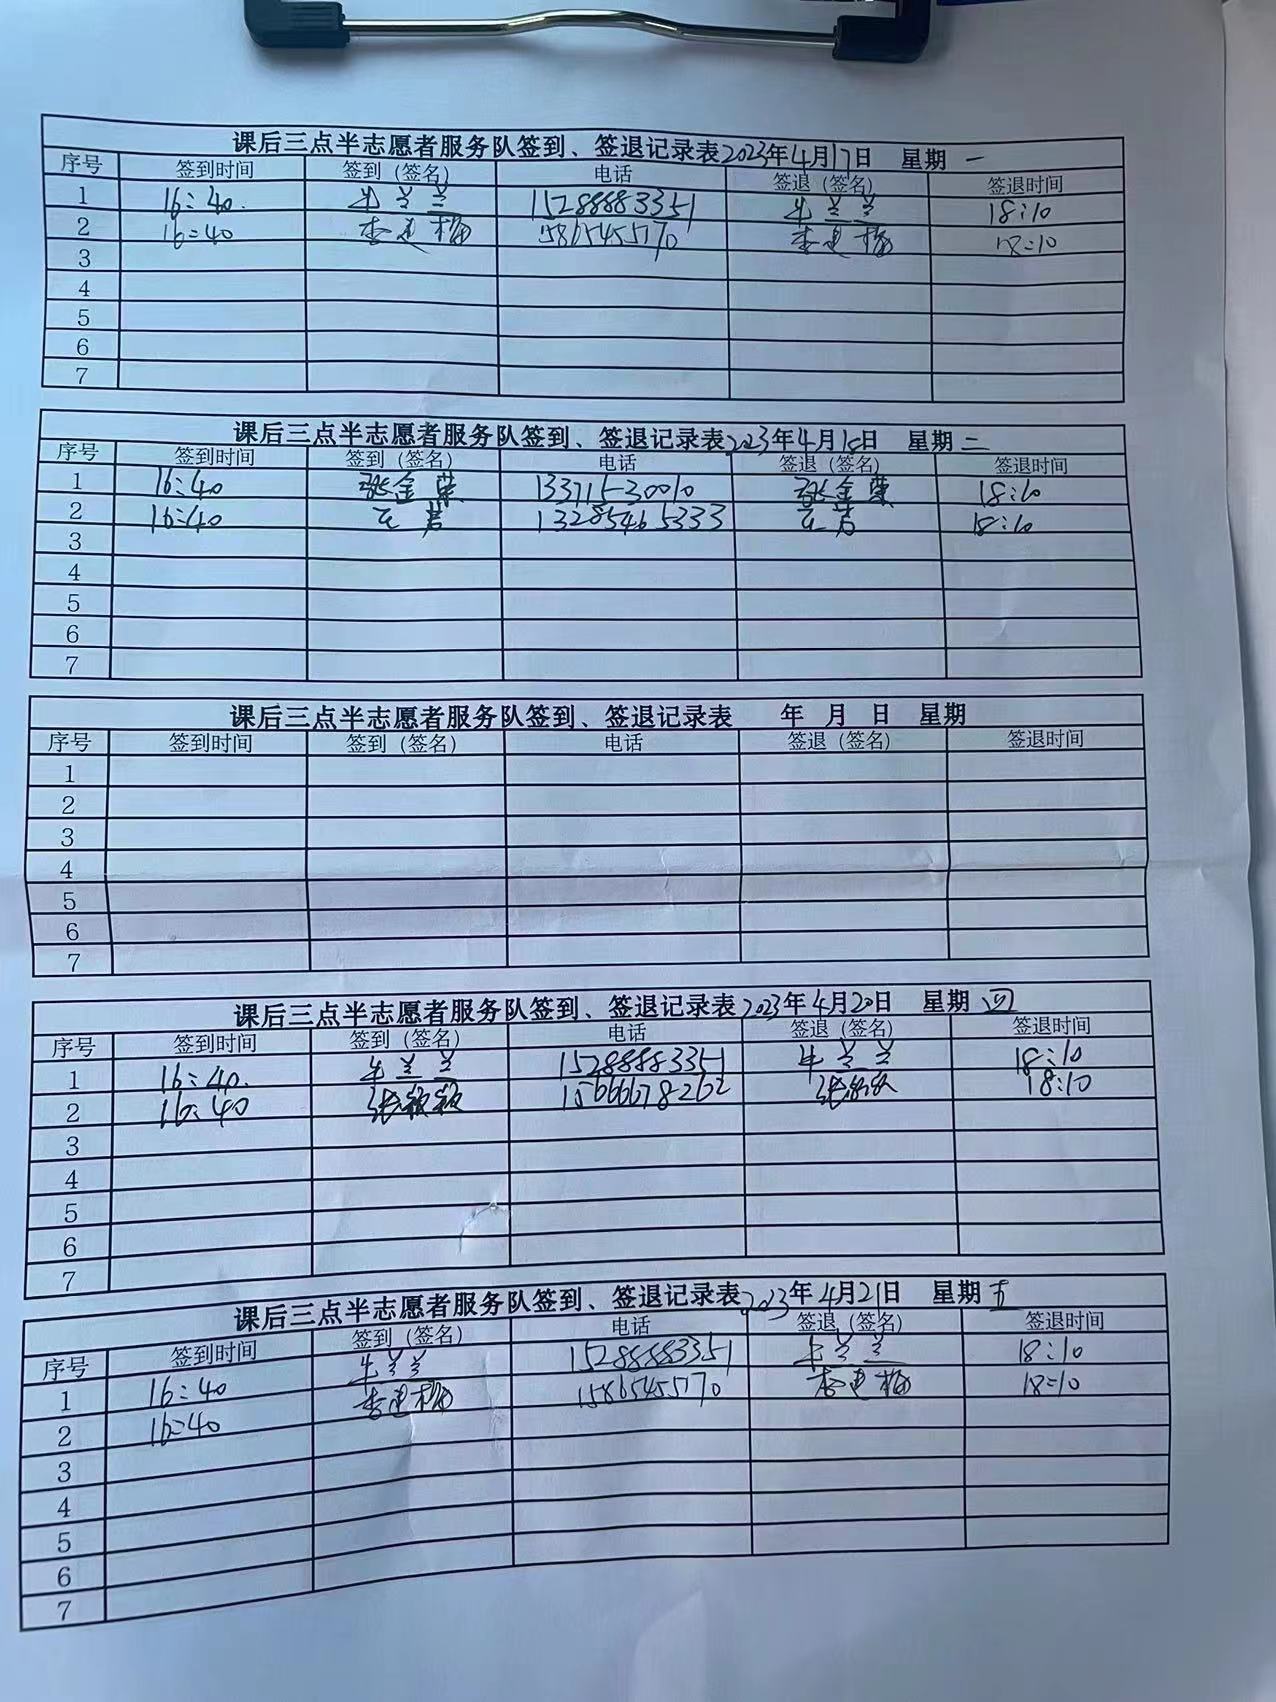 课后三点半志愿者服务队签到、签退记录表2023年4月17日 星期 一
序号 签到时间 签到（签名） 电话 签退（签名） 签退时间
1 16:40. 牛兰兰 15288883351 牛兰兰 18:10
2 16:40 李建梅 15865455170 李建梅 18:10
3
4
5
6
7
课后三点半志愿者服务队签到、签退记录表2023年4月18日 星期 二
序号 签到时间 签到（签名） 电话 签退（签名） 签退时间
1 16:40 张金荣 13371530010 张金荣 18:10
2 16:40 13285465333 18:10
3
4
5
6
7
课后三点半志愿者服务队签到、签退记录表 年 月 日 星期
序号 签到时间 签到（签名） 电话 签退（签名） 签退时间
1
2
3
4
5
6
7
课后三点半志愿者服务队签到、签退记录表2023年4月20日 星期 四
序号 签到时间 签到（签名） 电话 签退（签名） 签退时间
1 16:40. 牛兰兰 15288883351 牛兰兰 18:10
2 16:40 张 15666678262 张 18:10
3
4
5
6
7
课后三点半志愿者服务队签到、签退记录表2023年4月21日 星期 五
序号 签到时间 签到（签名） 电话 签退（签名） 签退时间
1 16:40 牛兰兰 15288883351 牛兰兰 18:10
2 16:40 李建梅 15865455170 李建梅 18:10
3
4
5
6
7